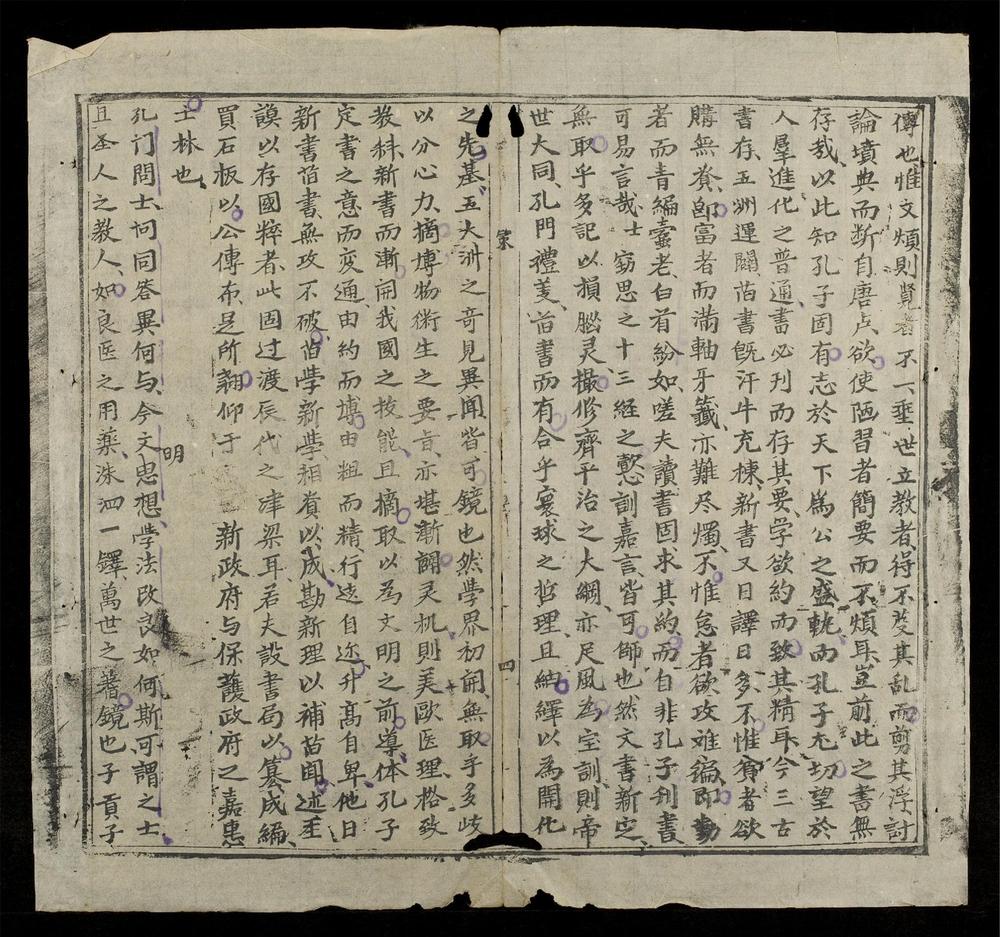 傳也惟文煩則覽者不一垂世立教者得不芟其乱而剪其浮討
論墳典而断自唐虞欲使陋習者簡要而不煩耳豈前此之書無
存哉以此知孔子固有志於天下為公之盛軌而孔子尤切望於
人羣進化之普通書必刊而存其要学欲約而致其精耳今三古
書存五洲運闢旧書既汗牛充棟新書又日譯日多不惟貧者欲
購無資即富者而滿軸牙籤亦難尽燭不惟怠者欲攻难編即勤
者而青編蠹老白首紛如嗟夫讀書固求其約而自非孔子刊書
可易言哉士窃思之十三経之懃訓嘉言皆可師也然文書新定
無取乎多記以損腦灵撮修齊平治之大綱亦足風為宝訓則帝
世大同孔門禮羙旧書而有合乎寰球之哲理且納繹以為開化
策
四
之先基五大洲之奇見異闻皆可鏡也然學界初開無取乎多歧
以分心力摘博物術生之要旨亦堪漸闢灵机則美歐医理格致
教科新書而漸開我國之技能且摘取以為文明之前導体孔子
定書之意而变通由約而博由粗而精行远自迩升高自卑他日
新書旧書無攻不破旧学新學相資以成勘新理以補旧闻述圣
謨以存國粹者此固过渡辰代之津梁耳若夫設書局以纂成編
買石板以公傳布是所翹仰于新政府与保護政府之嘉惠
士林也
孔门問士问同答異何与今文思想學法改良如何斯可謂之士
明
且圣人之教人如良医之用藥洙泗一鐸萬世之蓍鏡也子貢子